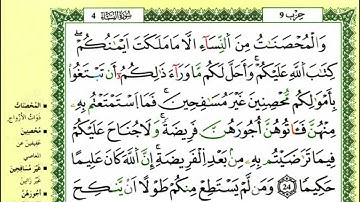 حزب 9
سُورَةُ النِّسَاءِ 4
وَالْمُحْصَنَـٰتُ مِنَ ٱلنِّسَآءِ الَّا مَا مَلَكَتَ اَيْمَـٰنُكُمْۖ
كِتَـٰبَ ٱللَّهِ عَلَيْكُمْۖ وَأَحَلَّ لَكُم مَّا وَرَآءَ ذَٰلِكُمُۥٓ أَن تَبْتَغُواْ
بِأَمْوَٰلِكُم مُّحْصِنِينَ غَيْرَ مُسَـٰفِحِينَۖ فَمَا ٱسْتَمْتَعْتُم بِهِۦ
مِنْهُنَّ فَـَٔاتُوهُنَّ أُجُورَهُنَّ فَرِيضَةًۖ وَلَا جُنَاحَ عَلَيْكُمْ
فِيمَا تَرَٰضَيْتُم بِهِۦ مِنۢ بَعْدِ ٱلْفَرِيضَةِۖ إِنَّ ٱللَّهَ كَانَ عَلِيمًا
حَكِيمًا 24 وَمَن لَّمْ يَسْتَطِعْ مِنكُمْ طَوْلًا اَنْ يَّنكِحَ
المُحْصَنَاتُ
ذَوَاتُ الأَزْوَاجِ.
مُحْصِنِينَ
عَفِيفِينَ عَنِ
المَعَاصِي
غَيْرَ مُسَافِحِينَ
غَيْرَ زَانِينَ
أُجُورَهُنَّ